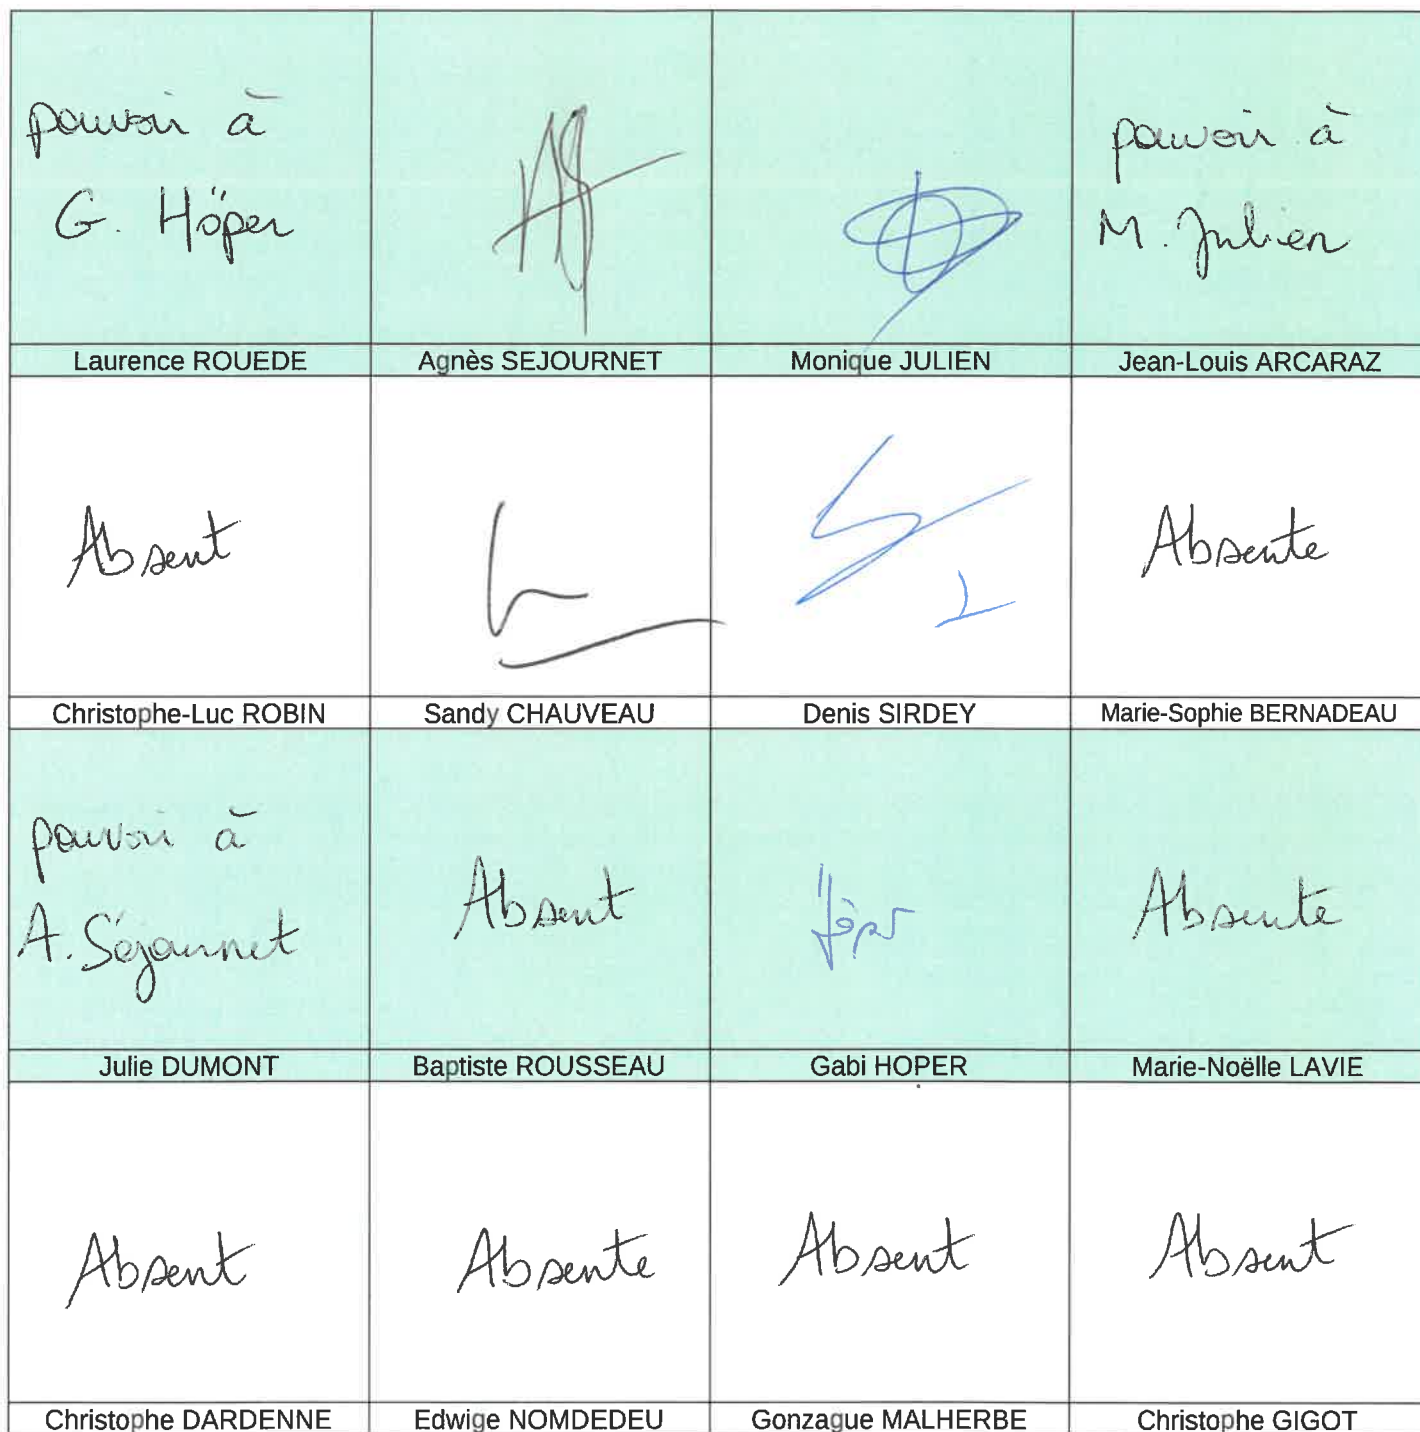 pouvoir à
G. Höper
pouvoir à
M. Julien
Laurence ROUEDE
Agnès SEJOURNET
Monique JULIEN
Jean-Louis ARCARAZ
Absent
Absente
Christophe-Luc ROBIN
Sandy CHAUVEAU
Denis SIRDEY
Marie-Sophie BERNADEAU
pouvoir à
A. Séjournet
Absent
Höper
Absente
Julie DUMONT
Baptiste ROUSSEAU
Gabi HOPER
Marie-Noëlle LAVIE
Absent
Absente
Absent
Absent
Christophe DARDENNE
Edwige NOMDEDEU
Gonzague MALHERBE
Christophe GIGOT